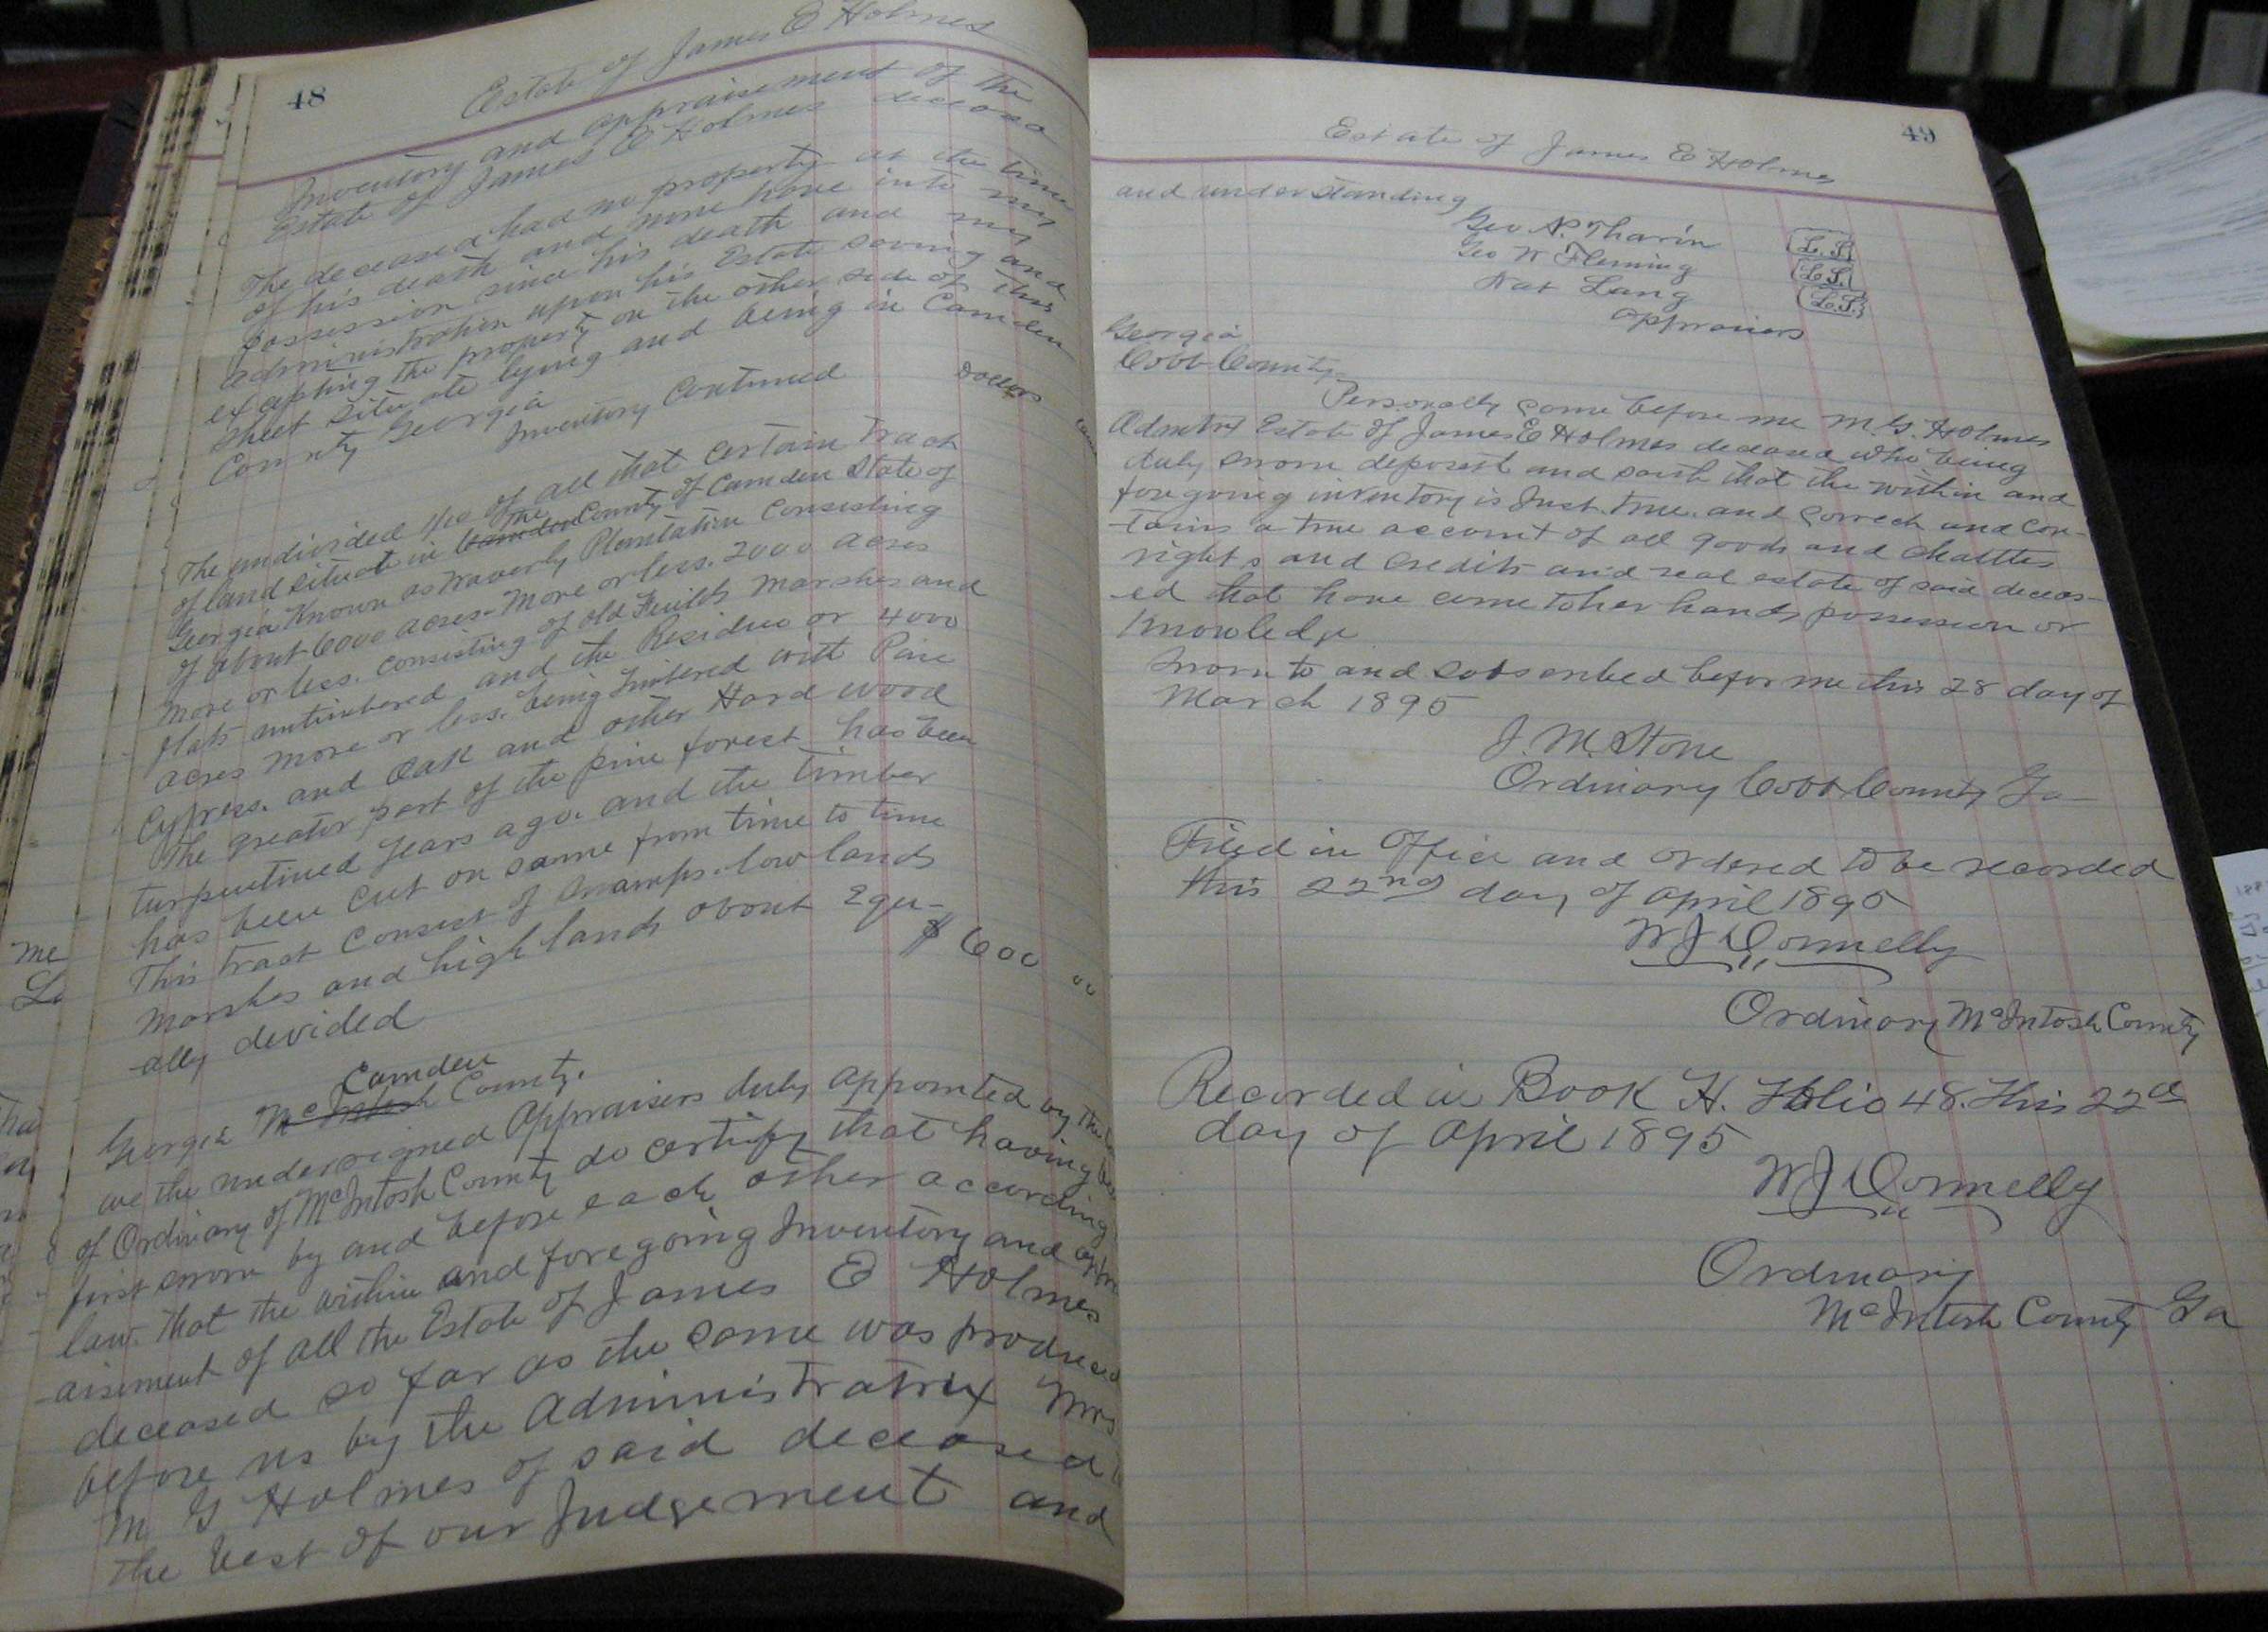 48
Estate of James E Holmes
Inventory and appraisement of the
Estate of James E Holmes deceased
The deceased had no property at the time
of his death and none have into my
possession since his death and my
administration upon his Estate saving and
excepting the property on the other side of this
sheet situate lying and being in Camden
County Georgia
Inventory Continued Dollars
The undivided 1/10 of all that certain tract
of land situate in Camden The County of Camden State of
Georgia Known as Waverly Plantation Consisting
of about 6000 acres. More or less. 2000 acres
more or less. consisting of old Feilds Marshes and
flats untimbered and the Residue or 4000
acres more or less. being timbered with Pine
Cypress. and Oak and other Hard wood
The greater part of the pine forest has been
turpentined years ago. and the timber
has been cut on same from time to time
This tract Consist of swamps. low lands
Marshes and high lands about Equ-
ally devided $600 00
Camden
Georgia McIntosh County.
we the undersigned Appraisers duly appointed by the
of Ordinary of McIntosh County do certify that having
first sworn by and before each other according
law. that the within and foregoing Inventory and appr
-aisement of all the Estate of James E Holmes
deceased so far as the same was produced
before us by the Administratrix Mrs
M G Holmes of said deceased
the best of our Judgement and
49
Estate of James E Holmes
and understanding
Geo N. Tharin L.S.
Geo W Fleming L.S.
Nat Lang L.S.
appraisers
Georgia
Cobb County
Personally come before me M.G. Holmes
Admtrx Estate of James E Holmes deceased who being
duly sworn deposeth and saith that the within and
foregoing inventory is Just. true. and correct and con-
-tains a true account of all goods and chattles
rights and credits and real estate of said deceas-
-ed that have come to her hands possession or
Knowledge
Sworn to and subscribed before me this 28 day of
March 1895
J. M. Stone
Ordinary Cobb County Ga
Filed in Office and ordered to be recorded
this 22nd day of April 1895
W J Donnelly
Ordinary McIntosh County
Recorded in Book H. Folio 48. This 22d
day of April 1895
W J Donnelly
Ordinary
McIntosh County Ga